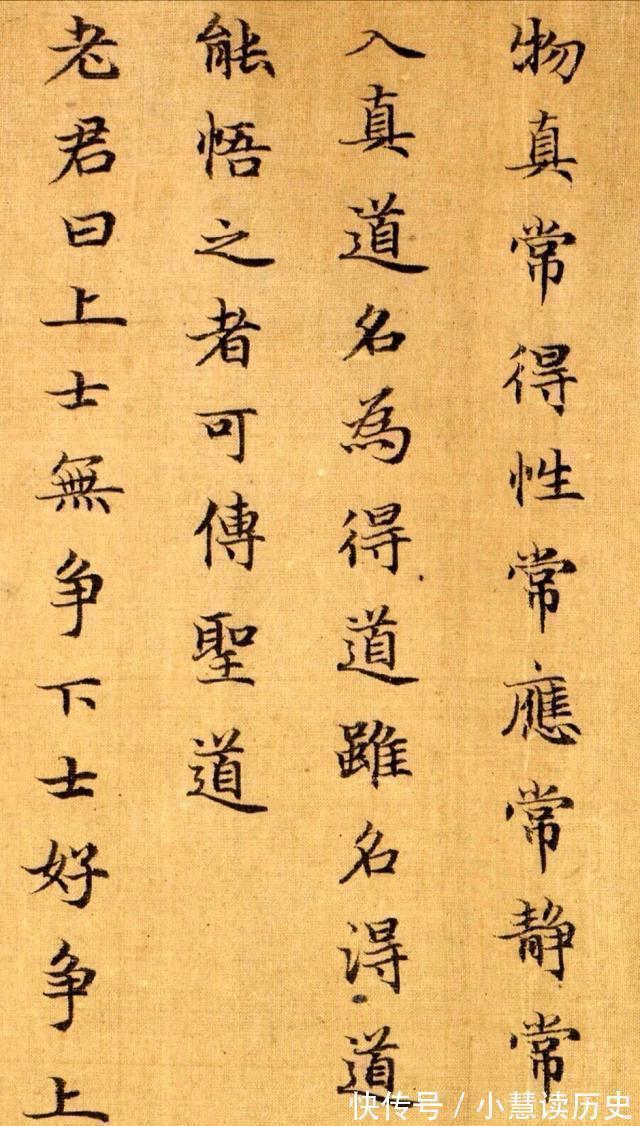 物真常得性常應常靜常
入真道名為得道雖名得道
能悟之者可傳聖道
老君曰上士無争下士好争上
快传号 / 小慧读历史